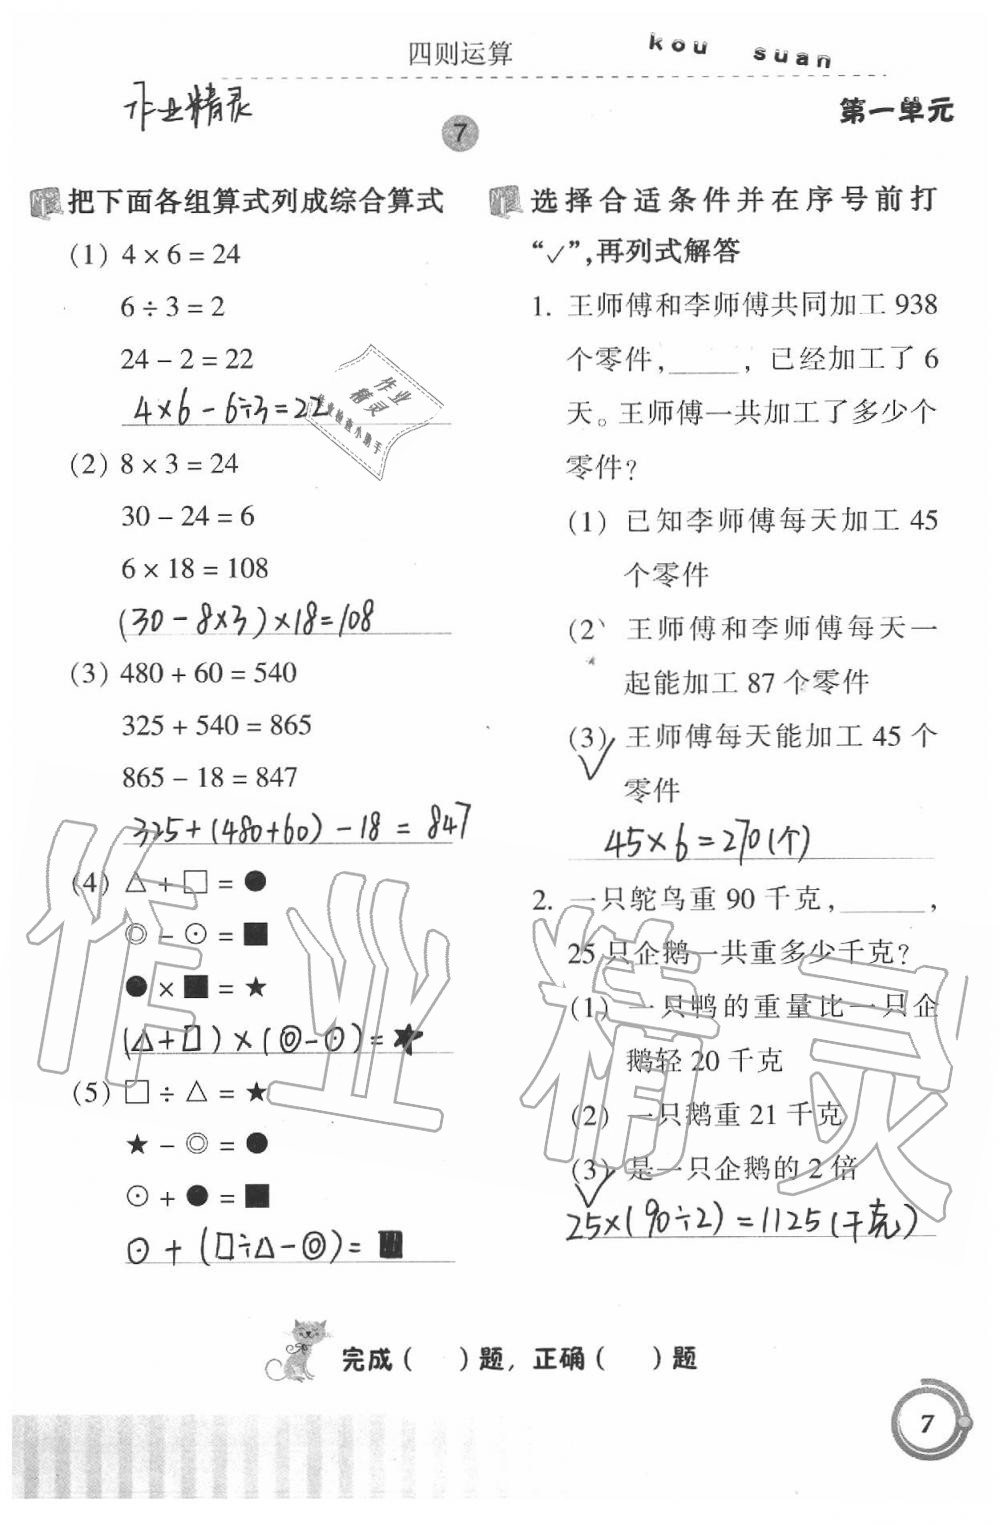 四则运算
kou suan
作业精灵
第一单元
7
把下面各组算式列成综合算式
(1) 4 × 6 = 24
6 ÷ 3 = 2
24 - 2 = 22
4×6-6÷3=22
(2) 8 × 3 = 24
30 - 24 = 6
6 × 18 = 108
(30-8×3)×18=108
(3) 480 + 60 = 540
325 + 540 = 865
865 - 18 = 847
325+(480+60)-18=847
(4) △ + □ = ●
◎ - ⊙ = ■
● × ■ = ★
(△+□)×(◎-⊙)=★
(5) □ ÷ △ = ★
★ - ◎ = ●
⊙ + ● = ■
⊙+(□÷△-◎)=■
选择合适条件并在序号前打
“✓”,再列式解答
1. 王师傅和李师傅共同加工 938
个零件,_____, 已经加工了 6
天。王师傅一共加工了多少个
零件?
(1) 已知李师傅每天加工 45
个零件
(2) 王师傅和李师傅每天一
起能加工 87 个零件
(3) 王师傅每天能加工 45 个
✓
零件
45×6=270(个)
2. 一只鸵鸟重 90 千克,______,
25 只企鹅一共重多少千克?
(1) 一只鸭的重量比一只企
鹅轻 20 千克
(2) 一只鹅重 21 千克
(3) 是一只企鹅的 2 倍
✓
25×(90÷2)=1125(千克)
作业
精灵
作业检查小助手
作业精灵
完成( )题, 正确( )题
7